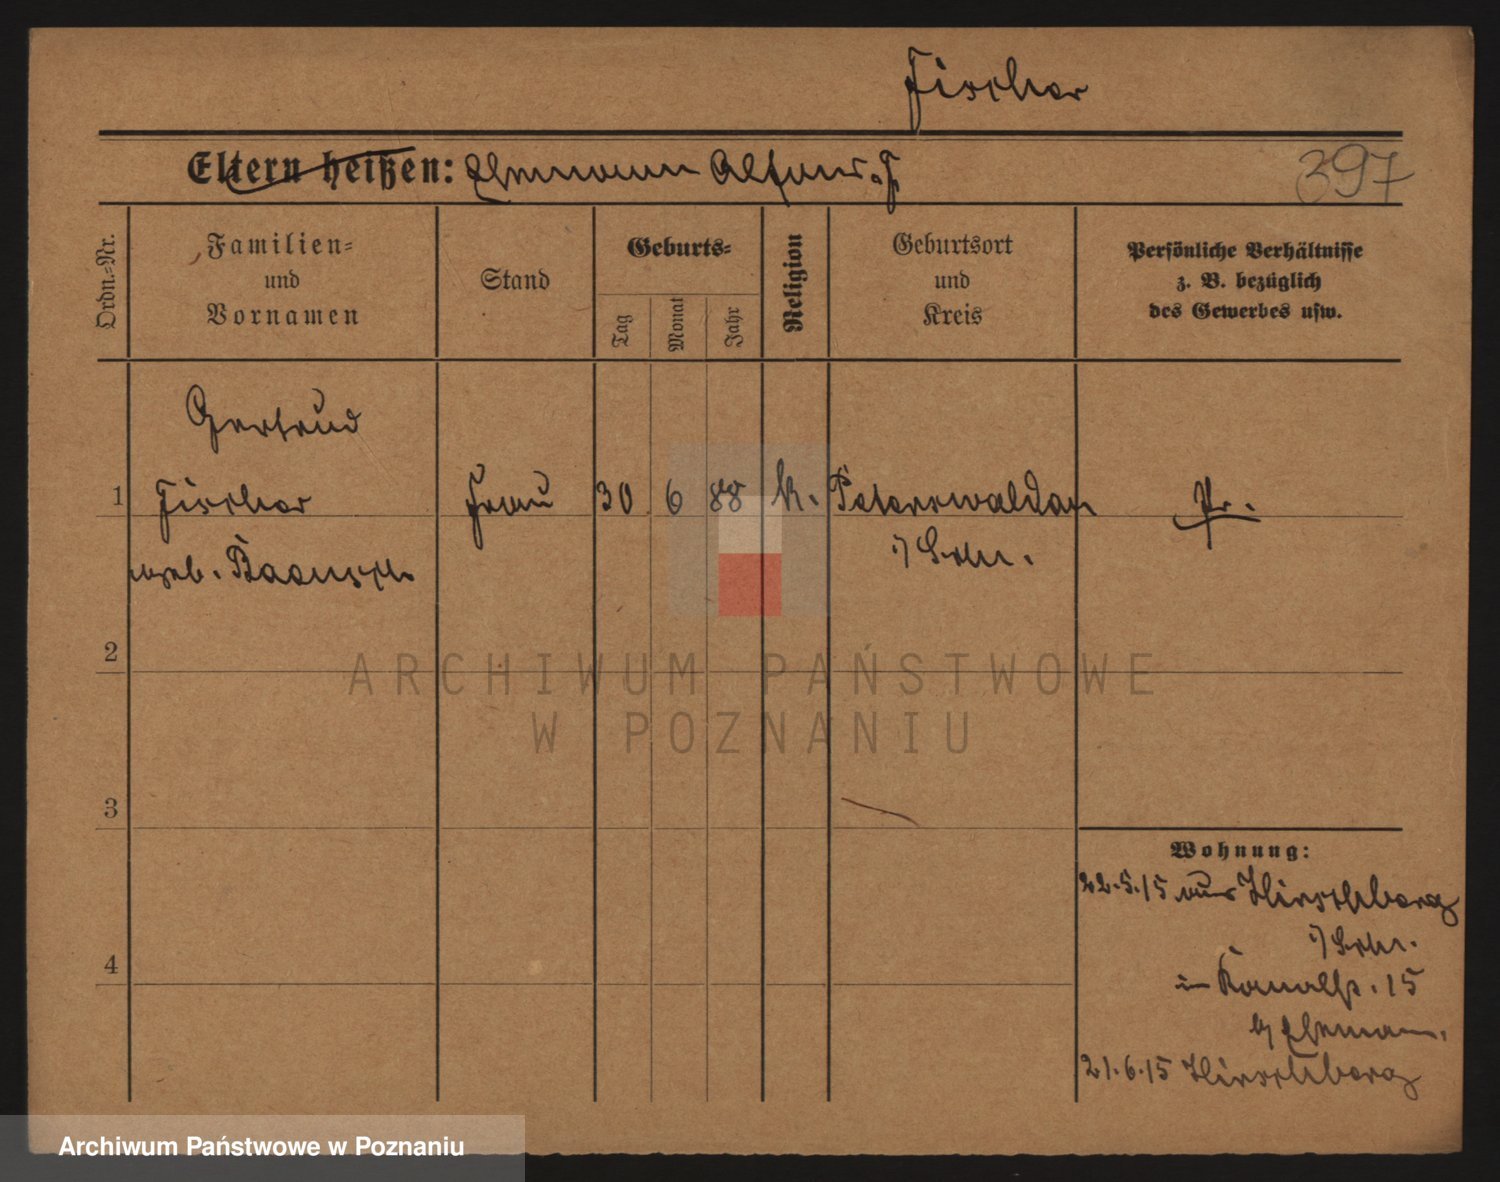 Fischer
Eltern heißen: Ehemann Alfons. F.
397
Ordn.-Nr.
Familien-
und
Vornamen
Stand
Geburts-
Tag
Monat
Jahr
Religion
Geburtsort
und
Kreis
Persönliche Verhältnisse
z. B. bezüglich
des Gewerbes usw.
Gertrud
1 Fischer Frau 30 6 88 k. Peterswaldau Pr.
i/Schl.
2
3
4
Wohnung:
22.5.15 aus Hirschberg
i/Schl.
in Kanalstr. 15
b/ Ehemann.
21.6.15 Hirschberg
ARCHIWUM PAŃSTWOWE
W POZNANIU
Archiwum Państwowe w Poznaniu